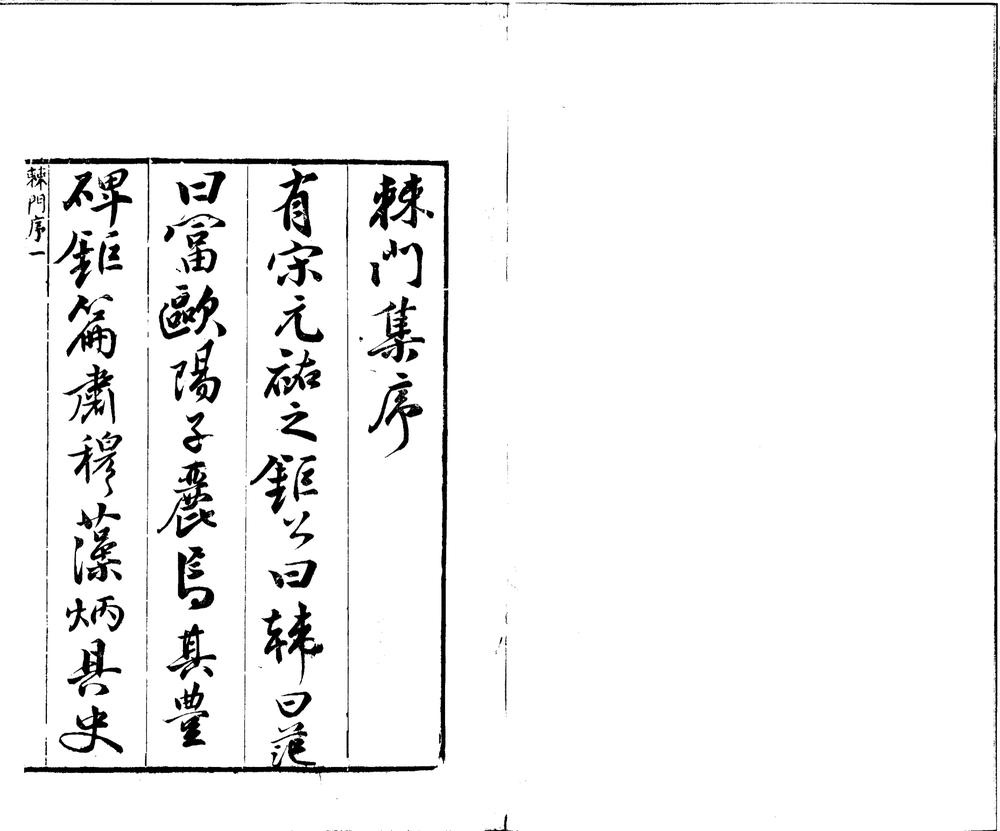 棘門集序
有宋元祐之鉅公曰韓曰范
曰富歐陽子麗焉其豊
碑鉅篇肅穆藻炳具史
棘門序一